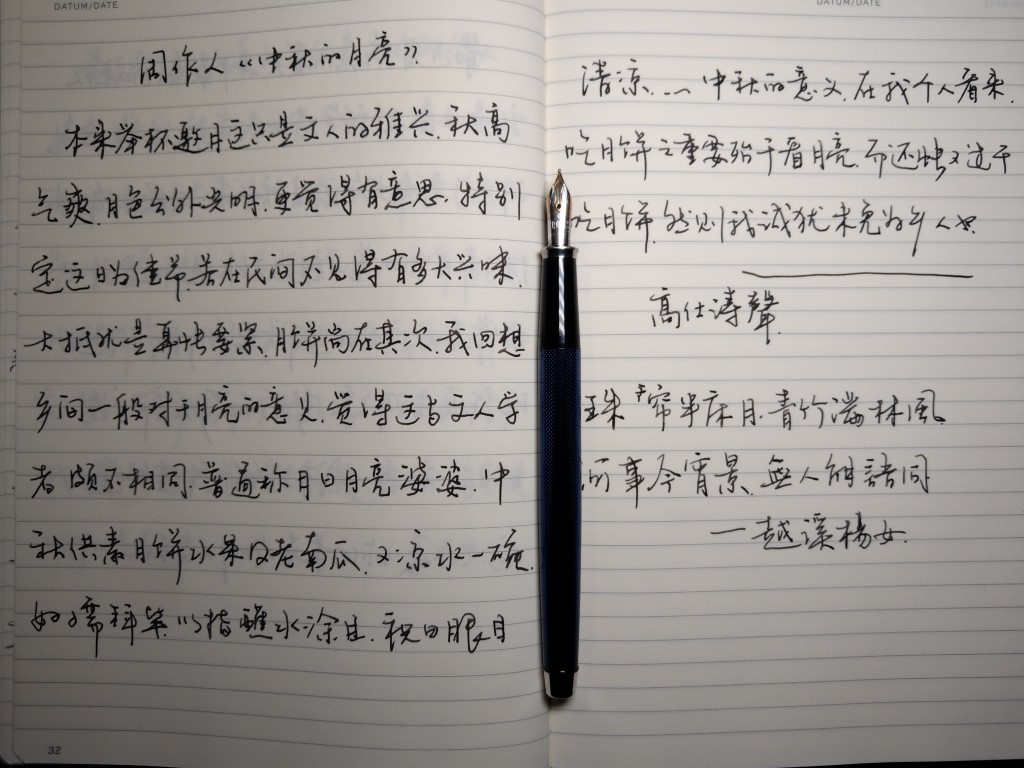 DATUM/DATE
周作人“中秋的月亮”
本来举杯邀月这只是文人的雅兴,秋高
气爽,月色分外光明,更觉得有意思,特别
定这日为佳节,若在民间不见得有多大兴味,
大抵就是算帐要紧,月饼尚在其次,我回想
乡间一般对于月亮的意见,觉得这与文人学
者颇不相同,普通称月曰月亮婆婆,中
秋供素月饼水果及老南瓜,又凉水一碗,
妇孺拜毕,以指蘸水涂目,祝曰眼目
32
DATUM/DATE
清凉……中秋的意义,在我个人看来,
吃月饼之重要殆于看月亮,而还帐又过于
吃月饼,然则我诚犹未免为乡人也.
高仕涛聲
珠帘半床月,青竹满林風
何事今宵景,無人解語同
—越溪杨女